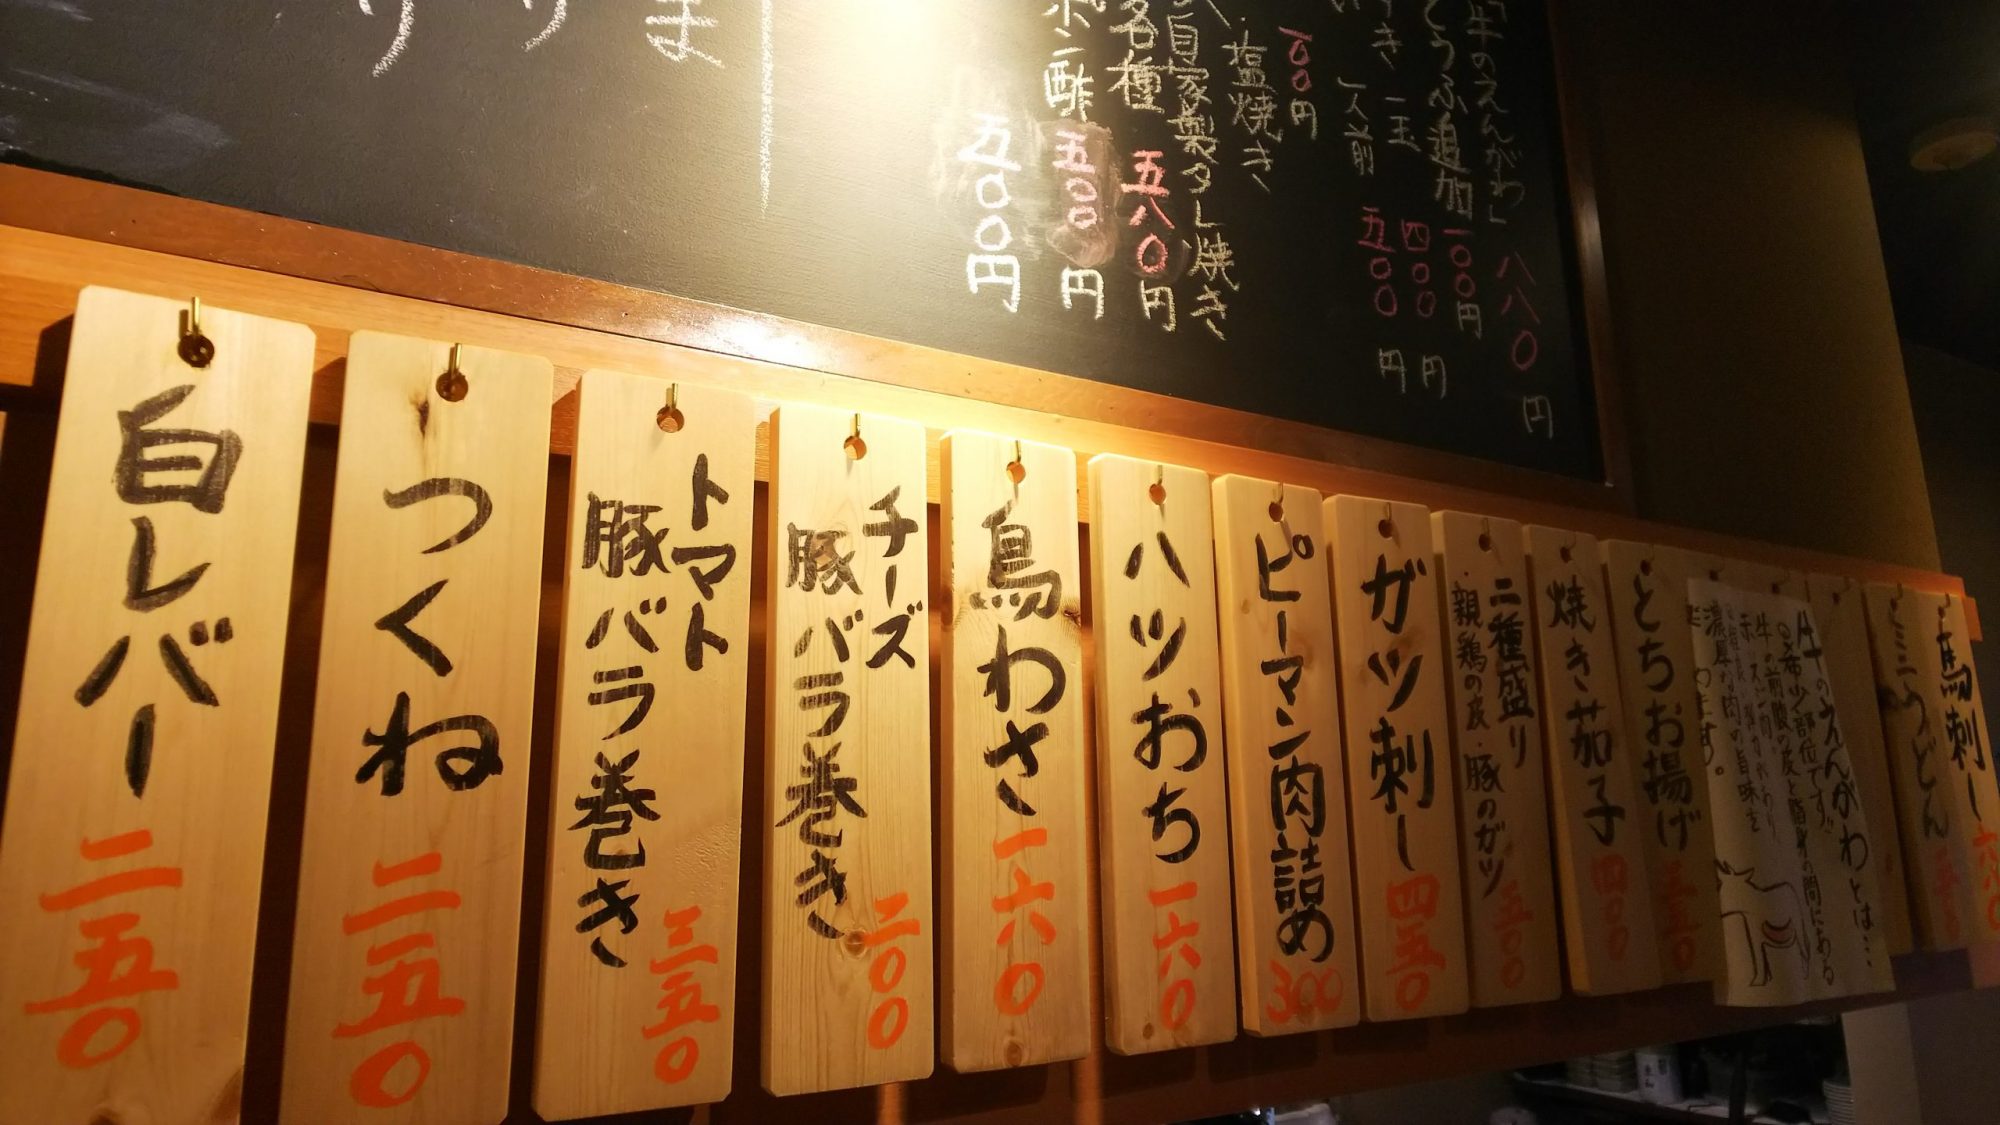 りりま
「牛のえんがわ」 八八〇円
とうふ追加 一〇〇円
一玉 四〇〇円
一人前 五〇〇円
一〇〇円
塩焼き
自家製タレ焼き
各種 五八〇円
ポン酢 五〇〇円
五〇〇円
白レバー 二五〇
つくね 二五〇
トマト
豚バラ巻き 三五〇
チーズ
豚バラ巻き 二〇〇
鳥わさ 一六〇
ハツおち 一六〇
ピーマン肉詰め 300
ガツ刺し 四五〇
二種盛り
親鶏の皮・豚のガツ 五〇〇
焼き茄子 四〇〇
とちお揚げ 五五〇
牛のえんがわとは…
希少部位です!!
牛の前膜の皮と脂身の間にある
濃厚な肉の旨味を
うどん
馬刺し